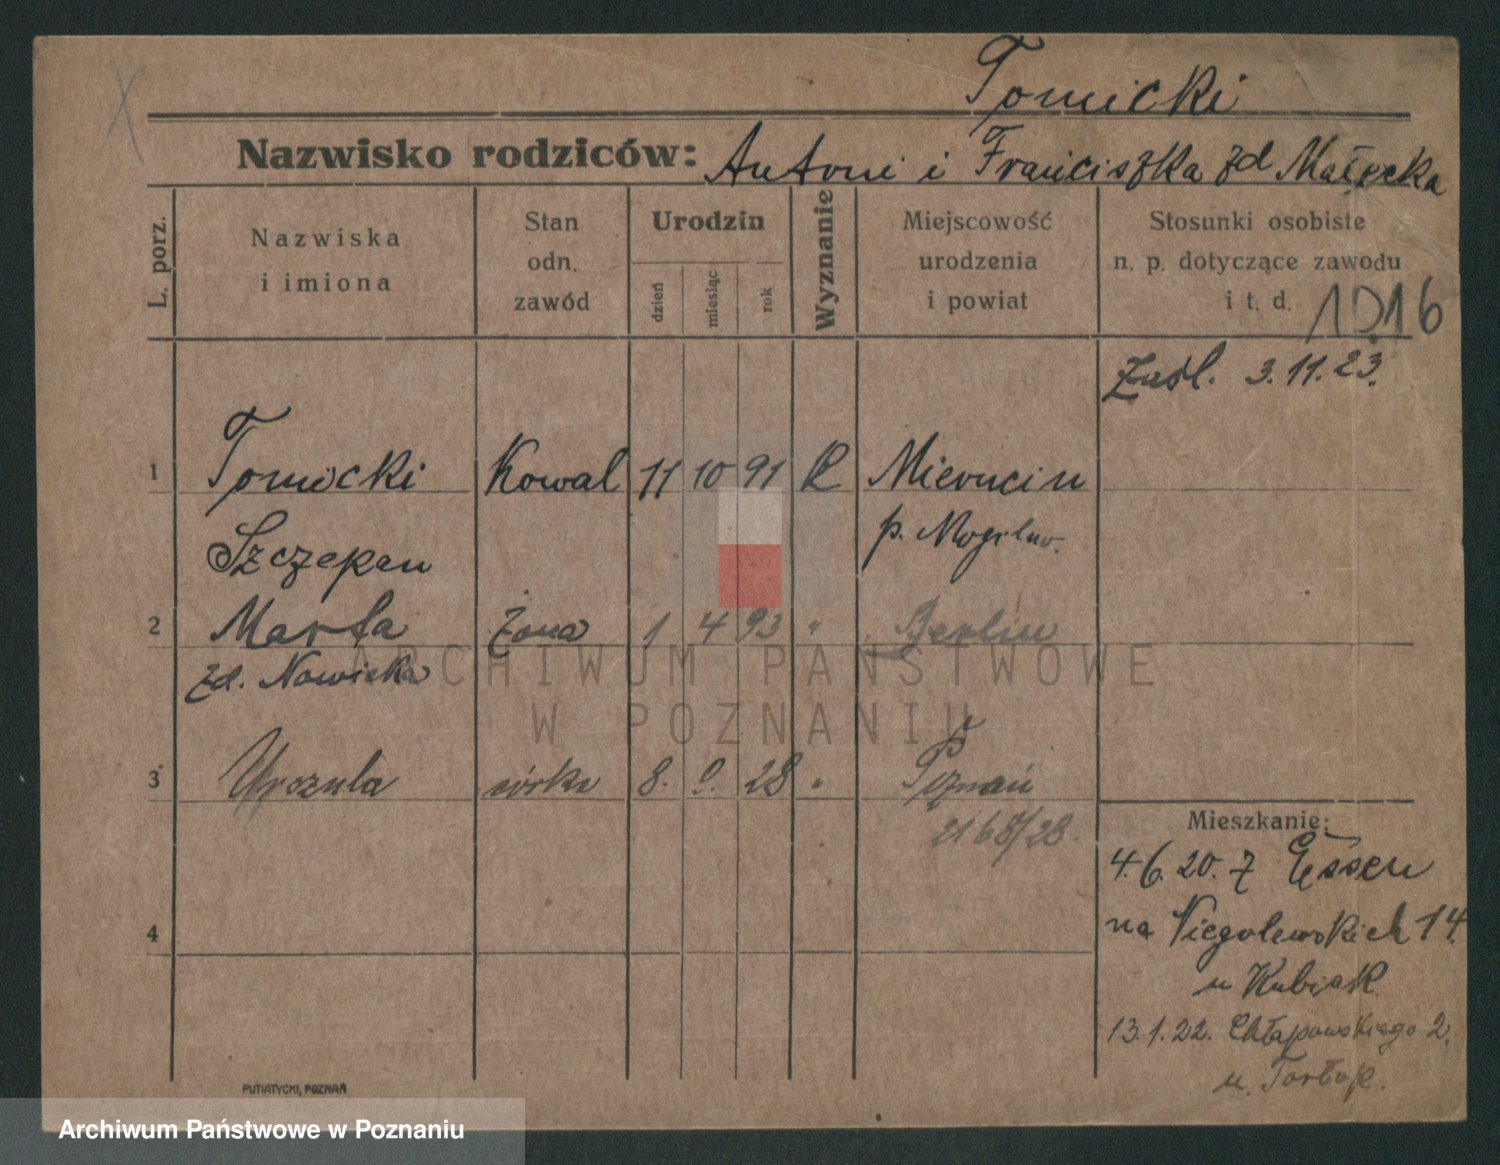 Tomicki
Nazwisko rodziców: Antoni i Franciszka zd Małecka
L. porz.
Nazwiska
i imiona
Stan
odn.
zawód
Urodzin
dzień
miesiąc
rok
Wyznanie
Miejscowość
urodzenia
i powiat
Stosunki osobiste
n. p. dotyczące zawodu
i t. d.
1916
Zaśl. 3.11.23.
1 Tomicki Kowal 11 10 91 R Mierucin
Szczepan p. Mogilno.
2 Marta żona 1 4 93 " Berlin
zd. Nowicka
3 Urszula córka 8. 9. 28 " Poznań
2168/28.
4
Mieszkanie:
4.6.20. z Essen
na Niegolewskich 14.
u Kubiak
13.1.22. Chłapowskiego 2.
u.
PUTIATYCKI, POZNAŃ
ARCHIWUM PAŃSTWOWE
W POZNANIU
Archiwum Państwowe w Poznaniu